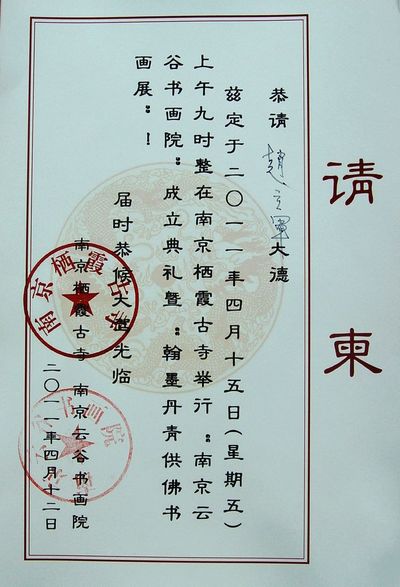 请柬
恭请 趙立軍 大德
兹定于二〇一一年四月十五日(星期五)
上午九时整在南京栖霞古寺举行“南京云
谷书画院”成立典礼暨“翰墨丹青供佛书
画展”！
届时恭候大驾光临
南京栖霞古寺 南京云谷书画院
二〇一一年四月十二日
南京栖霞古寺
书画院